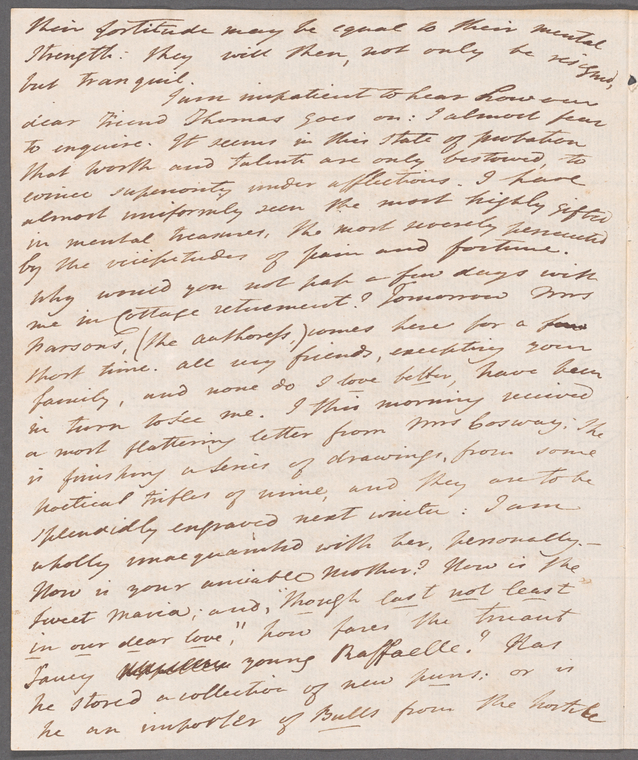 their fortitude may be equal to their mental
strength: they will then, not only be resigned,
but tranquil.
I am impatient to hear how our
dear friend Thomas goes on: I almost fear
to enquire. It seems in this state of probation
that worth and talents are only bestowed, to
evince superiority under afflictions. I have
almost uniformly seen the most highly gifted
in mental treasures, the most severely persecuted
by the vicissitudes of pain and fortune.
Why would you not pass a few days with
me in Cottage retirement? Tomorrow Mrs
Parsons, (the authoress,) comes here for a
short time. all my friends, excepting your
family, and none do I love better, have been
in turn to see me. I this morning received
a most flattering letter from Mrs Cosway; She
is finishing a series of drawings, from some
poetical trifles of mine, and they are to be
splendidly engraved next winter: I am
wholly unacquainted with her, personally.—
How is your amiable Mother? How is the
sweet Maria; and, "though last not least
in our dear love," how fares the truant
saucy young Raffaelle? Has
he stored a collection of new puns: or is
he an importer of Bulls from the